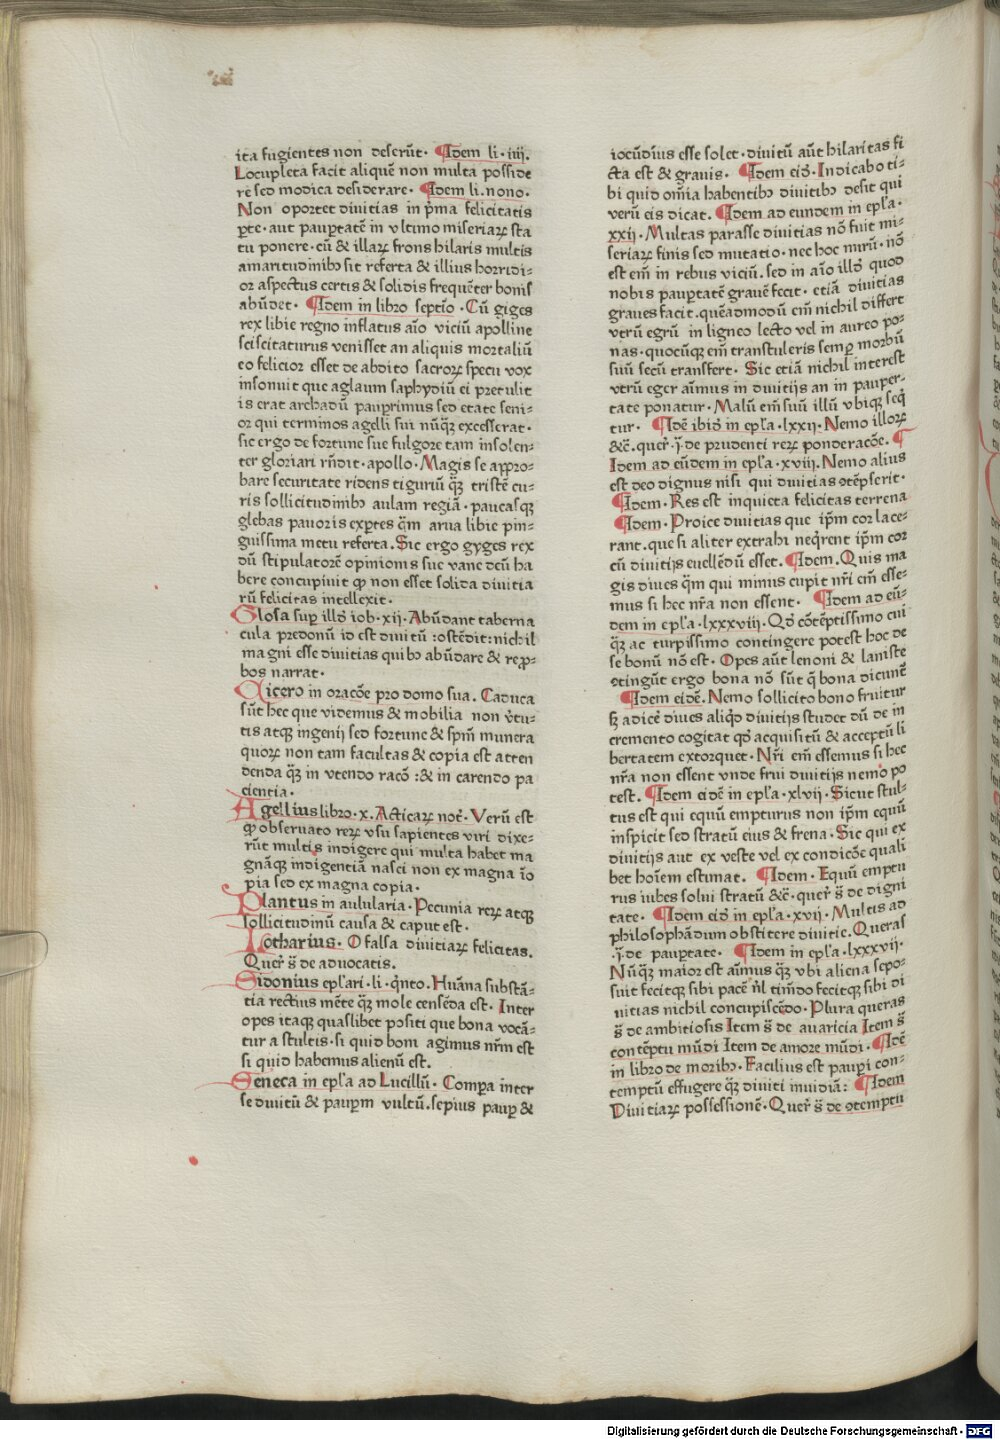 ita fugientes non deserūt · ¶Idem li · iiij.
Locupleta facit aliquē non multa posside
re sed modica desiderare · ¶Idem li. nono.
Non oportet diuitias in p̄ma felicitatis
ꝑte · aut paupertatē in vltimo miseriaꝝ sta
tu ponere · cū & illaꝝ frons hilaris multis
amaritudinibꝫ sit referta & illius horridi⸗
or aspectus certis & solidis frequēter bonis
abūdet · ¶Idem in libro septīo · Cū giges
rex libie regno inflatus aīo viciū apolline
sciscitaturus venisset an aliquis mortaliū
eo felicior esset de abdito sacroꝝ specu vox
insonuit que aglaum saphydiū ei pretulit
is erat archadū pauprimus sed etate seni⸗
or qui terminos agelli sui nūqꝫ excesserat ·
sic ergo de fortune sue fulgore tam insolen⸗
ter gloriari rñdit · apollo · Magis se appro⸗
bare securitate ridens tiguriū qꝫ̄ tristē cu⸗
ris sollicitudinibꝫ aulam regiā · paucasqꝫ
glebas pauoris exptes qm̄ arua libie pin⸗
guissima metu referta. Sic ergo gyges rex
dū stipulatorē opinionis sue vane deū ha
bere concupiuit ꝙ non esset solida diuitia
rū felicitas intellexit ·
Glosa suꝑ illđ iob · xij · Abūdant taberna
cula predonū id est diuitū : ostēdit: nichil
magni esse diuitias quibꝫ abūdare & repro⸗
bos narrat ·
Cicero in oracōe pro domo sua. Caduca
sūt hec que videmus & mobilia non v̄tu⸗
tis atqꝫ ingenij sed fortune & tpm̄ munera
quoꝝ non tam facultas & copia est atten
denda qꝫ̄ in vtendo racō :& in carendo pa
ciencia ·
Agellius libro · x. Acticaꝝ noc̄. Verū est
ꝙ obseruato reꝝ vsu sapientes viri dixe⸗
rūt multis indigere qui multa habet ma
gnāqꝫ indigentiā nasci non ex magna īo
pia sed ex magna copia ·
Plantus in aulularia · Pecunia reꝝ atqꝫ
sollicitudinū causa & caput est ·
Lotharius · O falsa diuitiaꝝ felicitas.
Quer̄ s̄ de aduocatis.
Sidonius ep̄lari · li · q̄nto · Huāna substā⸗
tia rectius mēte qꝫ̄ mole censēda est · Inter
opes itaqꝫ quaslibet positi que bona vocā⸗
tur a stultis · si quid boni agimus nr̄m est
si quid habemus alienū est.
Seneca in ep̄la ad Lucillū · Compa inter
se diuitū & paupm vultū. sepius paup &
iocūdius esse solet · diuitū aūt hilaritas fi
cta est & grauis · ¶Idem eiđ · Indicabo ti⸗
bi quid om̄ia habentibꝫ diuitibꝫ desit qui
verū eis dicat. ¶Idem ad eundem in ep̄la ·
xxij · Multas parasse diuitias nō fuit mi⸗
seriaꝝ finis sed mutatio · nec hoc mirū · nō
est em̄ in rebus viciū. sed in aīo illđ quod
nobis pauptatē grauē fecit · etiā diuitias
graues facit. quēadmodū em̄ nichil differt
vtrū egrū in ligneo lecto vel in aureo po⸗
nas · quocūqꝫ em̄ transtuleris semp morbū
suū secū transfert · Sic etiā nichil interest
vtrū eger aīmus in diuitijs an in pauper⸗
tate ponatur · Malū em̄ suū illū vbiqꝫ seq̄
tur · ¶Idē ibiđ in ep̄la · lxxij · Nemo illoꝝ
&c̄ · quer̄ · j̄ · de prudenti reꝝ ponderacōe. ¶
Idem ad eūdem in ep̄la · xviij. Nemo alius
est deo dignus nisi qui diuitias ꝯtēpserit ·
¶Idem · Res est inquieta felicitas terrena
¶Idem · Proice diuitias que ip̄m cor lace⸗
rant. que si aliter extrahi neq̄rent ip̄m cor
cū diuitijs euellēdū esset. ¶Idem. Quis ma
gis diues qm̄ qui minus cupit nr̄i em̄ esse⸗
mus si hec nr̄a non essent · ¶Idem ad eū⸗
dem in ep̄la · lxxxviij · Qđ cōtēptissimo cui
qꝫ̄ ac turpissimo contingere potest hoc de
se bonū nō est · Opes aūt lenoni & laniste
ꝯtingūt ergo bona nō sūt q̄ bona dicunt̄
¶Idem eidē. Nemo sollicito bono fruitur
sꝫ adicē diues aliq̄d diuitijs studet dū de in
cremento cogitat qđ acquisitū & acceptū li
bertatem extorquet · Nr̄i em̄ essemus si hec
nr̄a non essent vnde frui diuitijs nemo po
test. ¶Idem eidē in ep̄la · xlvij · Sicut stul⸗
tus est qui equū empturus non ip̄m equū
inspicit sed stratū eius & frena · Sic qui ex
diuitijs aut ex veste vel ex condicōe quali
bet hoīem estimat. ¶Idem · Equū emptu
rus iubes solui stratū &c̄ · quer̄ s̄ de digni
tate · ¶Idem eiđ in ep̄la · xvij · Multis ad
philosophādum obstitere diuitie. Queras
· j̄ · de pauptate · ¶Idem in ep̄la · lxxxvij ·
Nūqꝫ̄ maior est aīmus qꝫ̄ vbi aliena sepo⸗
suit fecitqꝫ sibi pacē nl̄ timēdo fecitqꝫ sibi di
uitias nichil concupiscēdo · Plura queras
s̄ de ambitiosis Item s̄ de auaricia Item s̄
contēptu mūdi Item de amore mūdi · ¶Idē
in libro de moribꝫ · Facilius est paupi con⸗
temptū effugere qꝫ̄ diuiti inuidiā: ¶Idem
Diuitiaꝝ possessionē · Quer̄ s̄ de ꝯtemptu
Digitalisierung gefördert durch die Deutsche Forschungsgemeinschaft - DFG